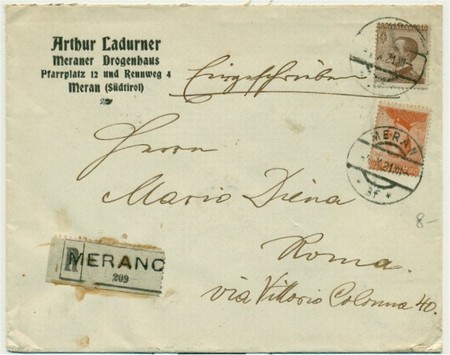 Arthur Ladurner
Meraner Drogenhaus
Pfarrplatz 12 und Rennweg 4
Meran (Südtirol)
Eingeschrieben
Herrn
Mario Diena
Roma.
via Vittorio Colonna 40.
R
MERANO
209
MERAN
8-